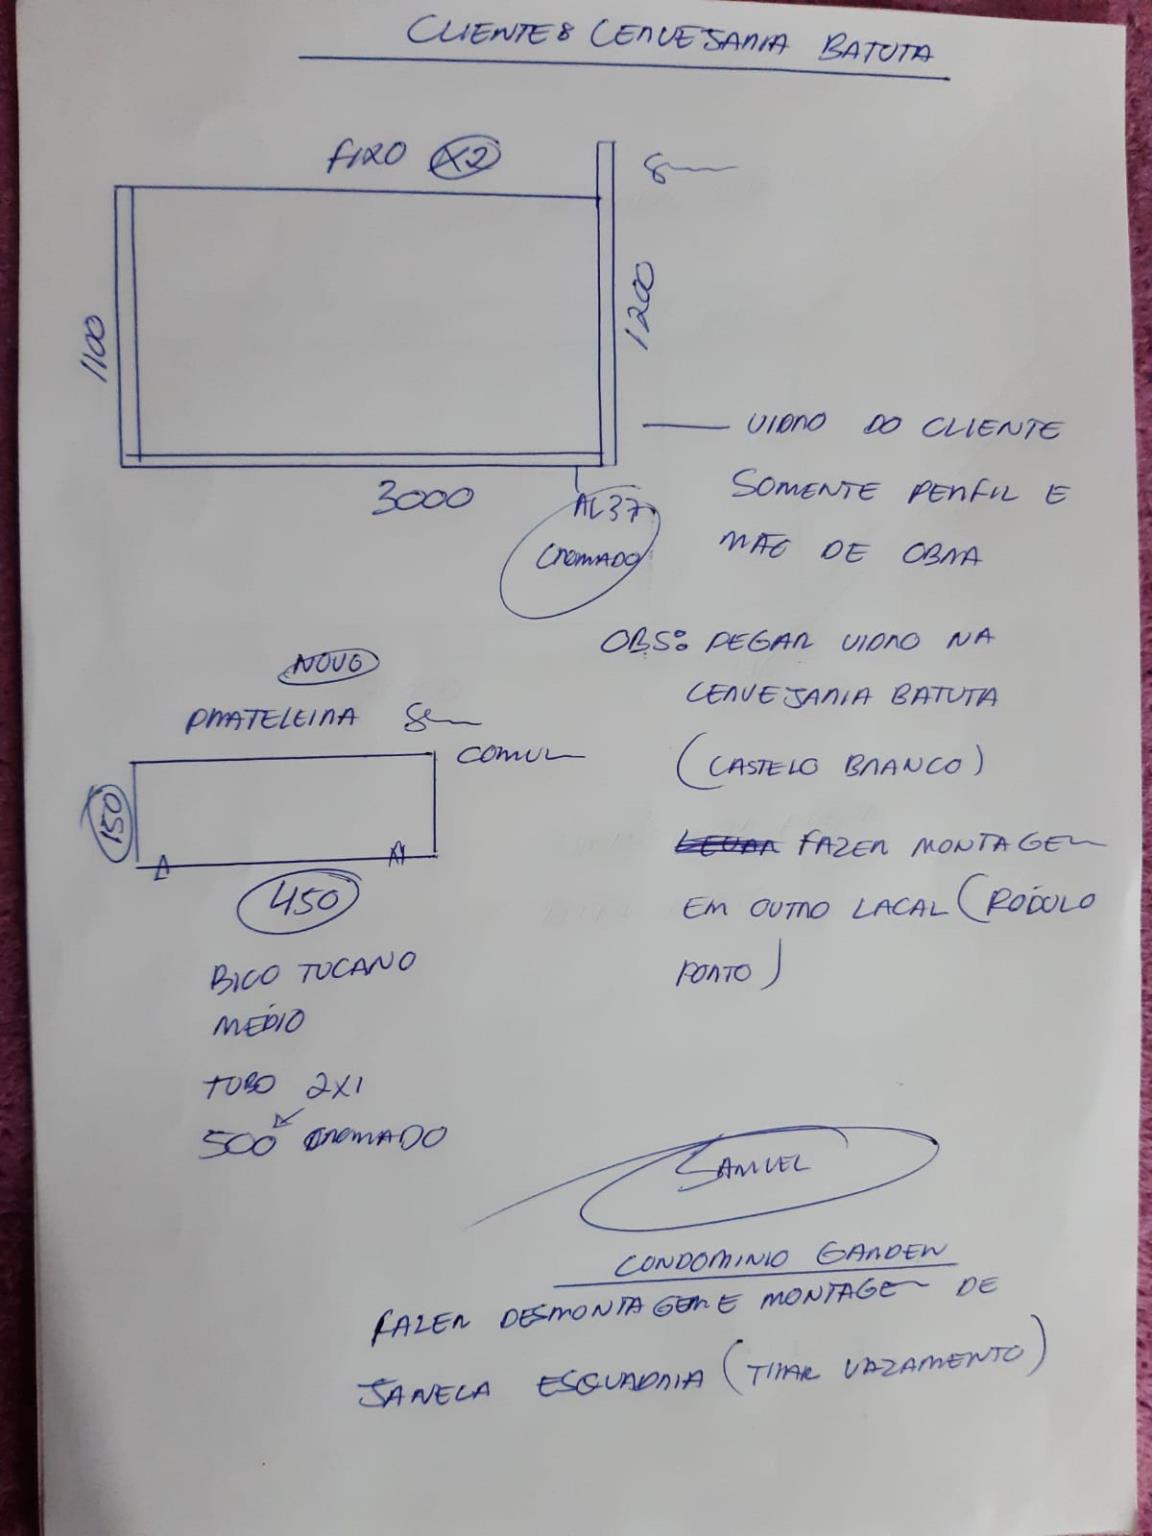 CLIENTE: CERVEJARIA BATUTA
FIXO X2
8m
1100
1200
3000
AL37
CROMADO
VIDRO DO CLIENTE
SOMENTE PERFIL E
MÃO DE OBRA
OBS: PEGAR VIDRO NA
CERVEJARIA BATUTA
(CASTELO BRANCO)
FAZER MONTAGEM
EM OUTRO LACAL (RÓDULO
PORTO)
NOVO
PRATELEIRA 8m
COMUM
150
450
BICO TUCANO
MÉDIO
TUBO 2X1
500 CROMADO
SAMUEL
CONDOMINIO GARDEN
FAZER DESMONTAGEM E MONTAGEM DE
JANELA ESQUADRIA (TIRAR VAZAMENTO)